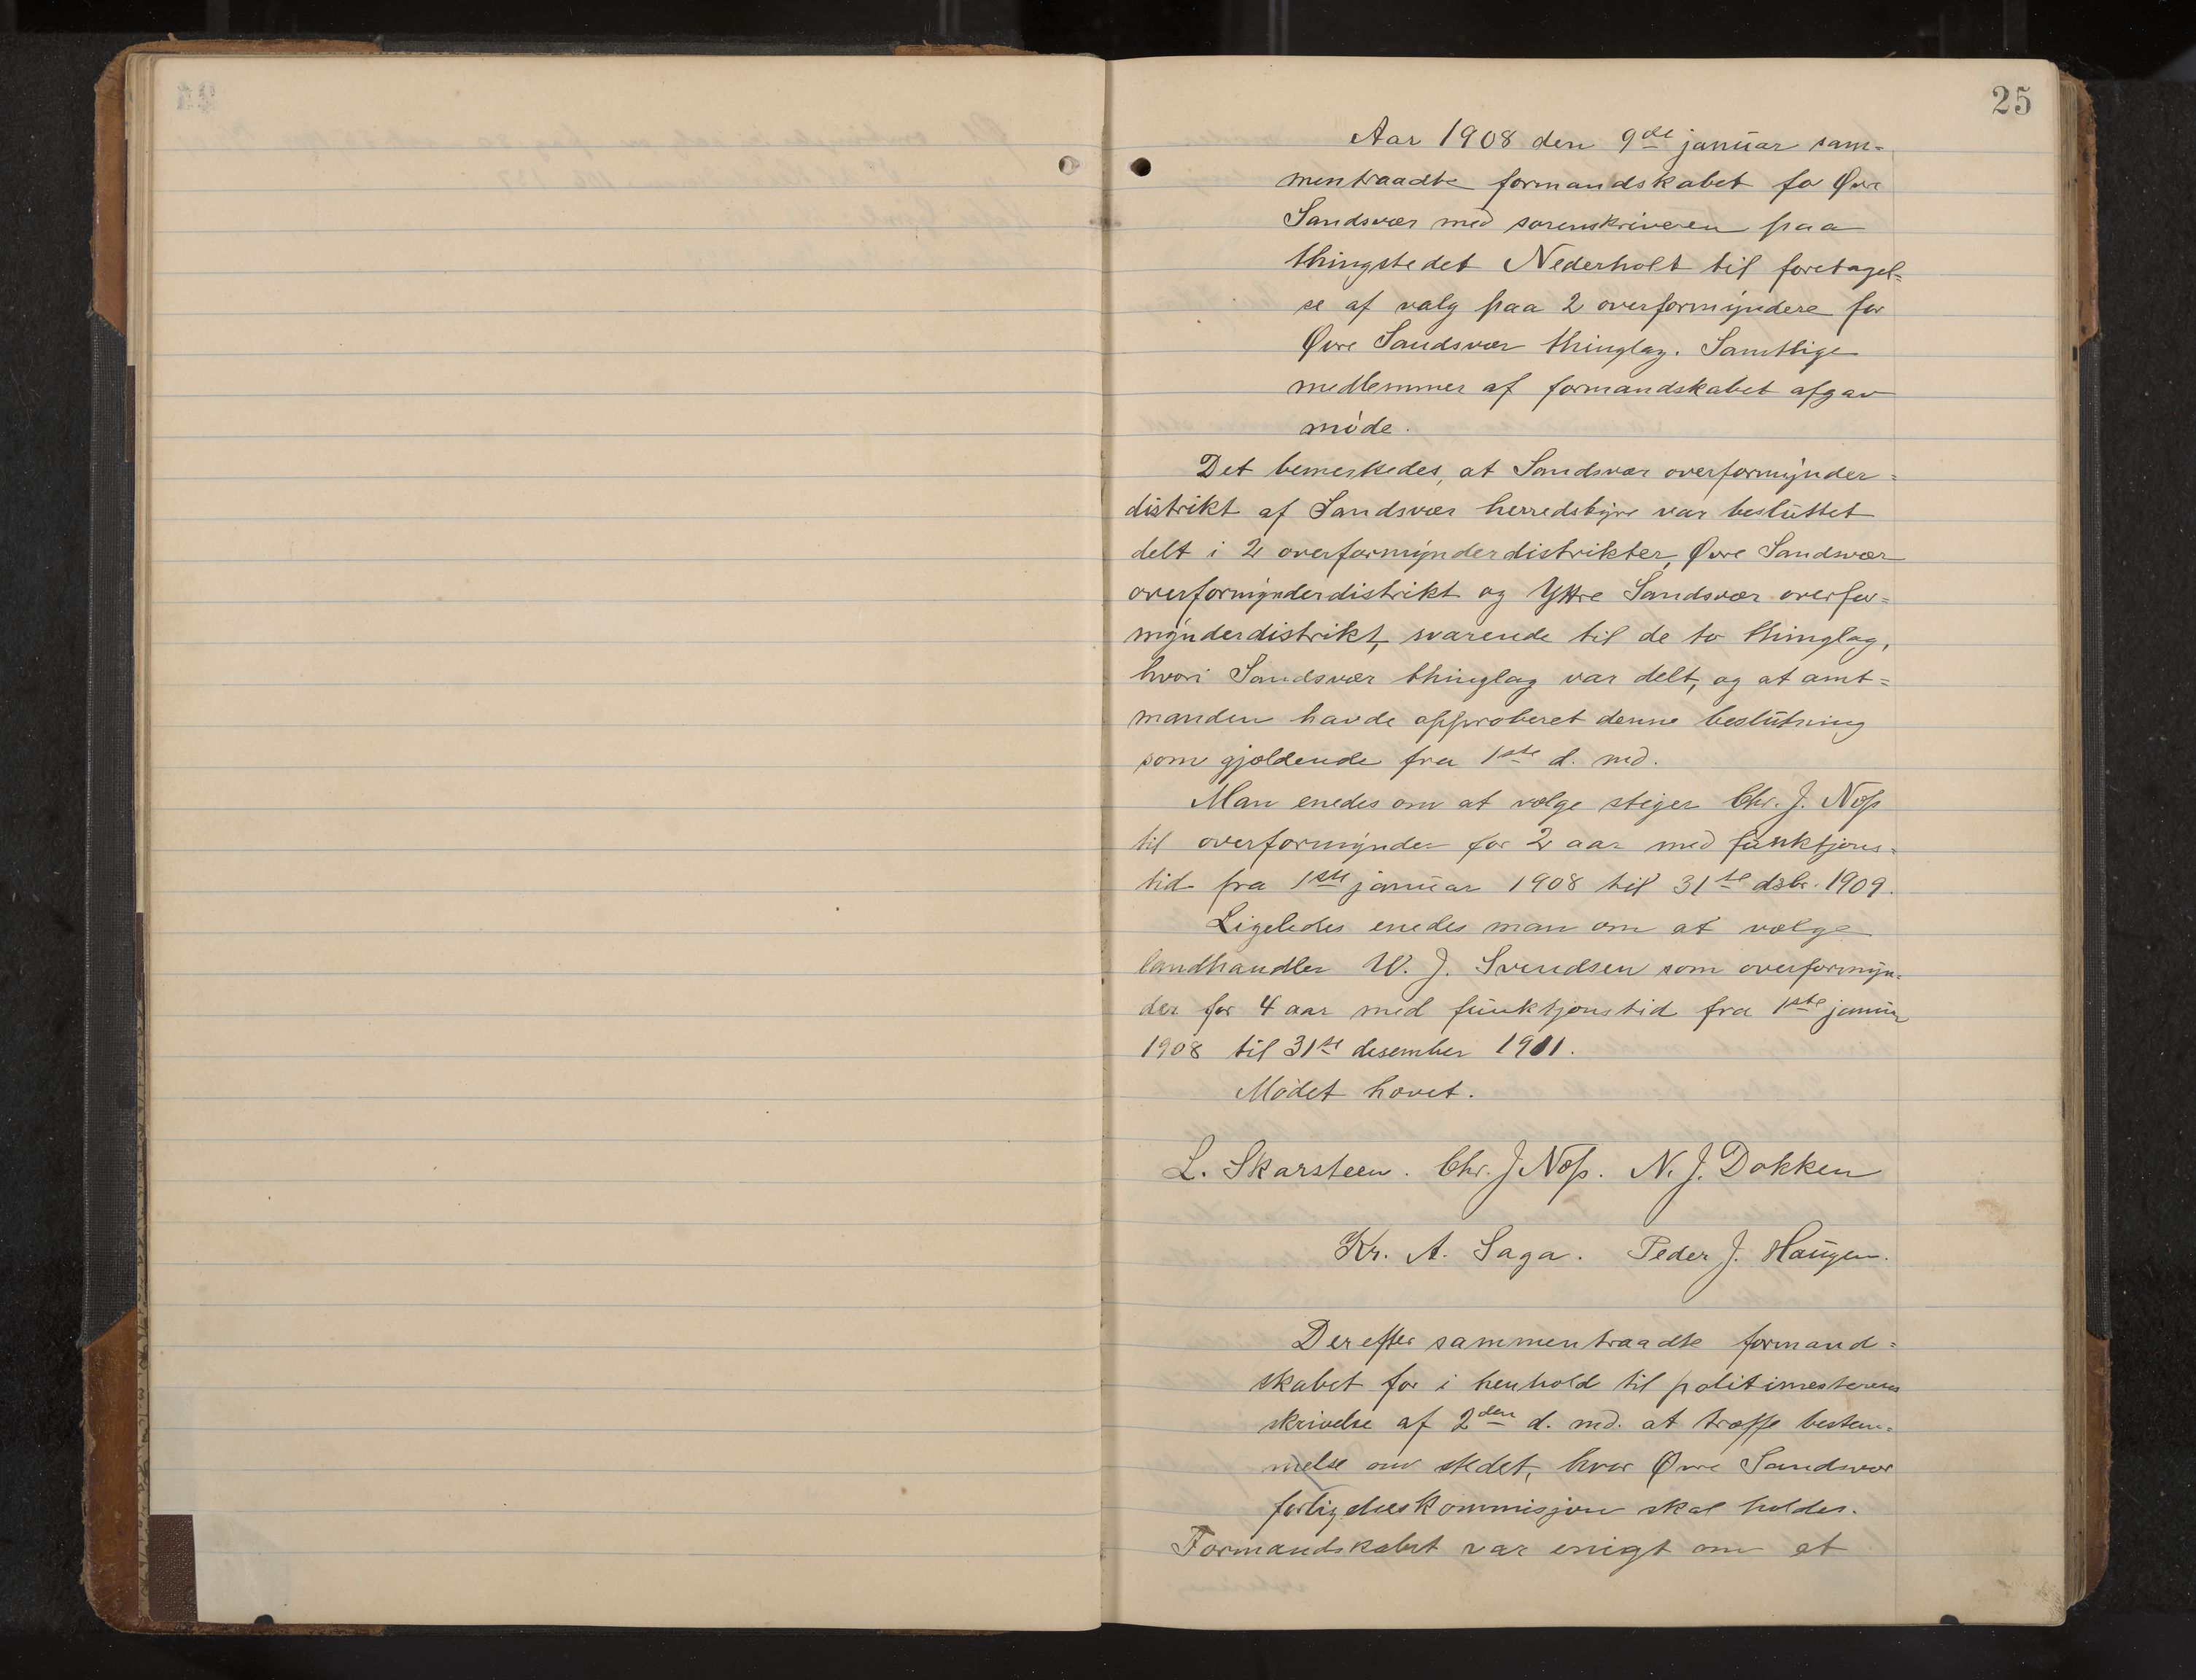 25
Aar 1908 den 9de januar sam=
mentraadte formandskabet for Øvre
Sandsvær med sorenskriveren paa
thingstedet Nederholt til foretagel=
se af valg paa 2 overformyndere for
Øvre Sandsvær thinglag. Samtlige
medlemmer af formandskabet afgav
møde.
Det bemerkedes, at Sandsvær overformynder=
distrikt af Sandsvær herredstyre var besluttet
delt i 2 overformynderdistrikter, Øvre Sandsvær
overformynderdistrikt og Yttre Sandsvær overfor=
mynderdistrikt, svarende til de to thinglag,
hvori Sandsvær thinglag var delt, og at amt=
manden havde approberet denne beslutning
som gjældende fra 1ste d. md.
Man enedes om at vælge stiger Chr. J. Næss
til overformynder for 2 aar med funktjons=
tid fra 1ste januar 1908 til 31te dsbr. 1909.
Ligeledes enedes man om at vælge
landhandler W. J. Svendsen som overformyn=
der for 4 aar med funktjonstid fra 1ste januar
1908 til 31te desember 1911.
Mødet hævet.
L. Skarsteen. Chr. J Næss. N. J. Dokken
Kr. A. Saga. Peder J. Haugen.
Derefter sammentraadte formand=
skabet for i henhold til politimesterens
skrivelse af 2den d. md. at træffe bestem=
melse om stedet, hvor Øvre Sandsvær
forligelseskommisjon skal holdes.
Formandskabet var enigt om at